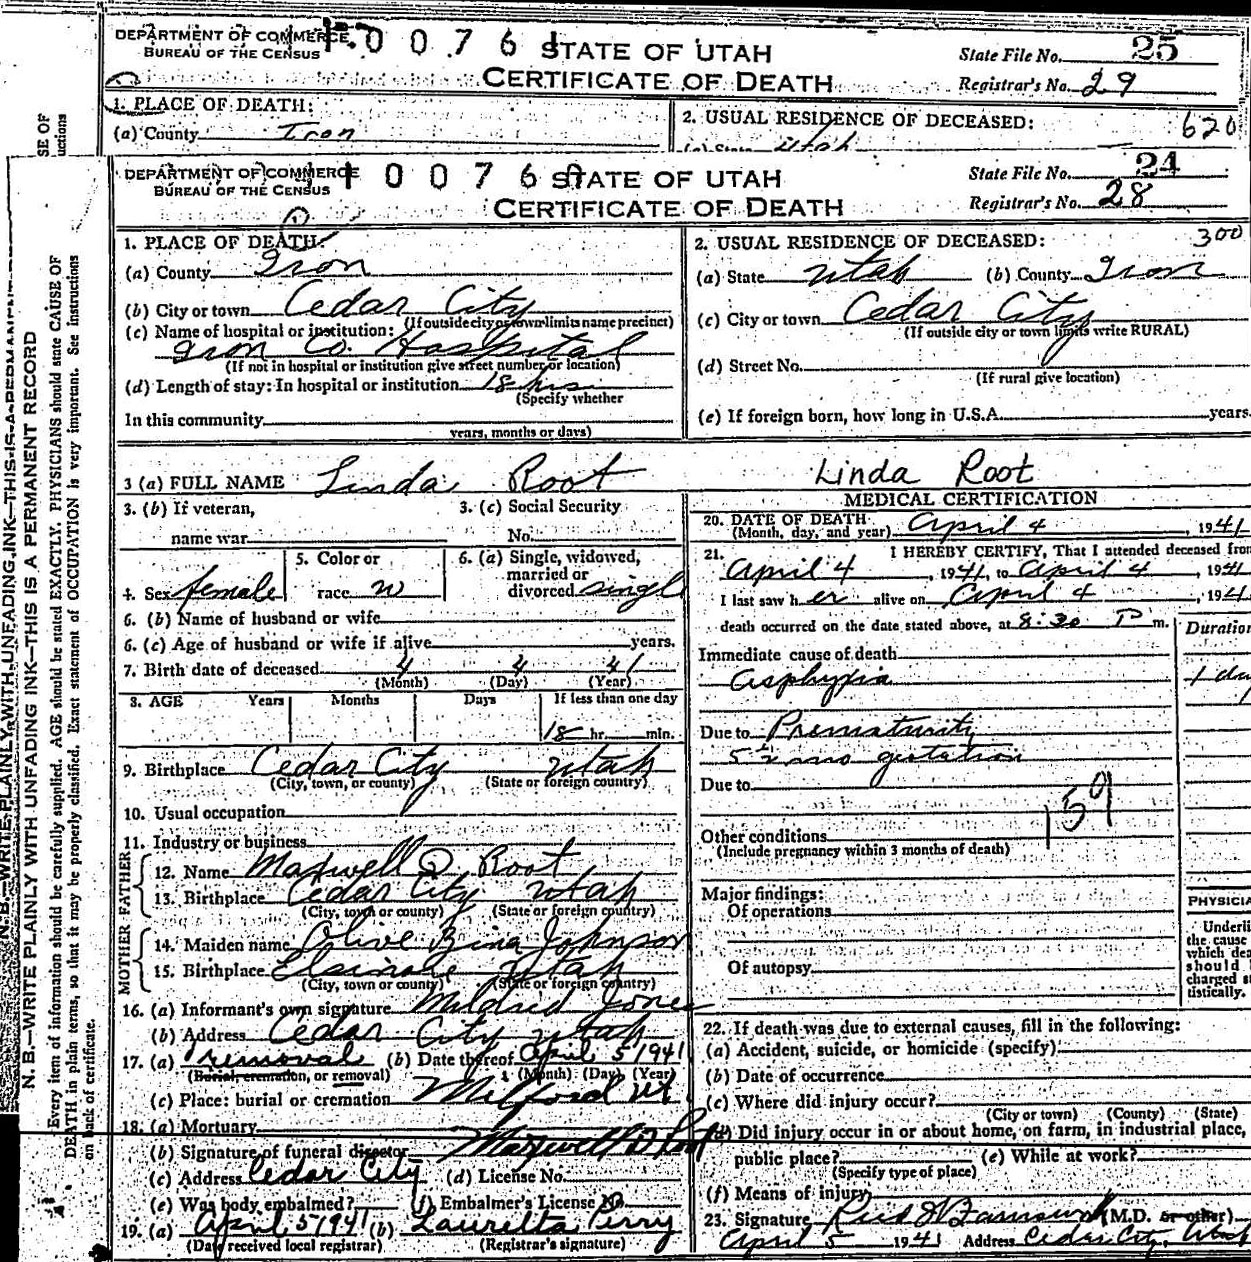 DEPARTMENT OF COMMERCE
BUREAU OF THE CENSUS
0 0 7 6 1
STATE OF UTAH
CERTIFICATE OF DEATH
State File No. 25
Registrar's No. 29
1. PLACE OF DEATH:
(a) County Iron
2. USUAL RESIDENCE OF DECEASED: 620
(a) State Utah
DEPARTMENT OF COMMERCE
BUREAU OF THE CENSUS
0 0 7 6 0
STATE OF UTAH
CERTIFICATE OF DEATH
State File No. 24
Registrar's No. 28
1. PLACE OF DEATH:
(a) County Iron
(b) City or town Cedar City
(If outside city or town limits name precinct)
(c) Name of hospital or institution:
Iron Co. Hospital
(If not in hospital or institution give street number or location)
(d) Length of stay: In hospital or institution 18 hrs.
(Specify whether
In this community
years, months or days)
2. USUAL RESIDENCE OF DECEASED: 300
(a) State Utah (b) County Iron
(c) City or town Cedar City
(If outside city or town limits write RURAL)
(d) Street No.
(If rural give location)
(e) If foreign born, how long in U.S.A. years.
3 (a) FULL NAME Linda Root
Linda Root
3. (b) If veteran,
name war
3. (c) Social Security
No.
4. Sex female
5. Color or
race W
6. (a) Single, widowed,
married or
divorced single
6. (b) Name of husband or wife
6. (c) Age of husband or wife if alive years.
7. Birth date of deceased 4 4 41
(Month) (Day) (Year)
8. AGE Years Months Days If less than one day
18 hr. min.
9. Birthplace Cedar City Utah
(City, town, or county) (State or foreign country)
10. Usual occupation
11. Industry or business
FATHER
12. Name Maxwell D Root
13. Birthplace Cedar City Utah
(City, town or county) (State or foreign country)
MOTHER
14. Maiden name Olive Bina Johnson
15. Birthplace Elsinore Utah
(City, town or county) (State or foreign country)
16. (a) Informant's own signature Mildred Jones
(b) Address Cedar City Utah
17. (a) removal (b) Date thereof April 5 1941
(Burial, cremation, or removal) (Month) (Day) (Year)
(c) Place: burial or cremation Milford Ut
18. (a) Mortuary
(b) Signature of funeral director Maxwell D Root
(c) Address Cedar City (d) License No.
(e) Was body embalmed? (f) Embalmer's License No.
19. (a) April 5 1941 (b) Lauretta Perry
(Date received local registrar) (Registrar's signature)
MEDICAL CERTIFICATION
20. DATE OF DEATH
(Month, day, and year) April 4, 1941
21. I HEREBY CERTIFY, That I attended deceased from
April 4, 1941, to April 4, 1941
I last saw her alive on April 4, 194
death occurred on the date stated above, at 8:30 P m.
Duration
Immediate cause of death
Asphyxia 1 day
Due to Prematurity
5½ mo gestation
Due to
159
Other conditions
(Include pregnancy within 3 months of death)
Major findings:
Of operations
Of autopsy
PHYSICIA
Underli
the cause
which dea
should
charged st
tistically.
22. If death was due to external causes, fill in the following:
(a) Accident, suicide, or homicide (specify)
(b) Date of occurrence
(c) Where did injury occur?
(City or town) (County) (State)
(d) Did injury occur in or about home, on farm, in industrial place,
public place? (e) While at work?
(Specify type of place)
(f) Means of injury
23. Signature (M.D. or other)
April 5 1941 Address Cedar City, Utah
SE OF
uctions
N. B.—WRITE PLAINLY, WITH UNFADING INK—THIS IS A PERMANENT
N. B.—WRITE PLAINLY WITH UNFADING INK—THIS IS A PERMANENT RECORD
Every item of information should be carefully supplied. AGE should be stated EXACTLY. PHYSICIANS should state CAUSE OF
DEATH in plain terms, so that it may be properly classified. Exact statement of OCCUPATION is very important. See instructions
on back of certificate.